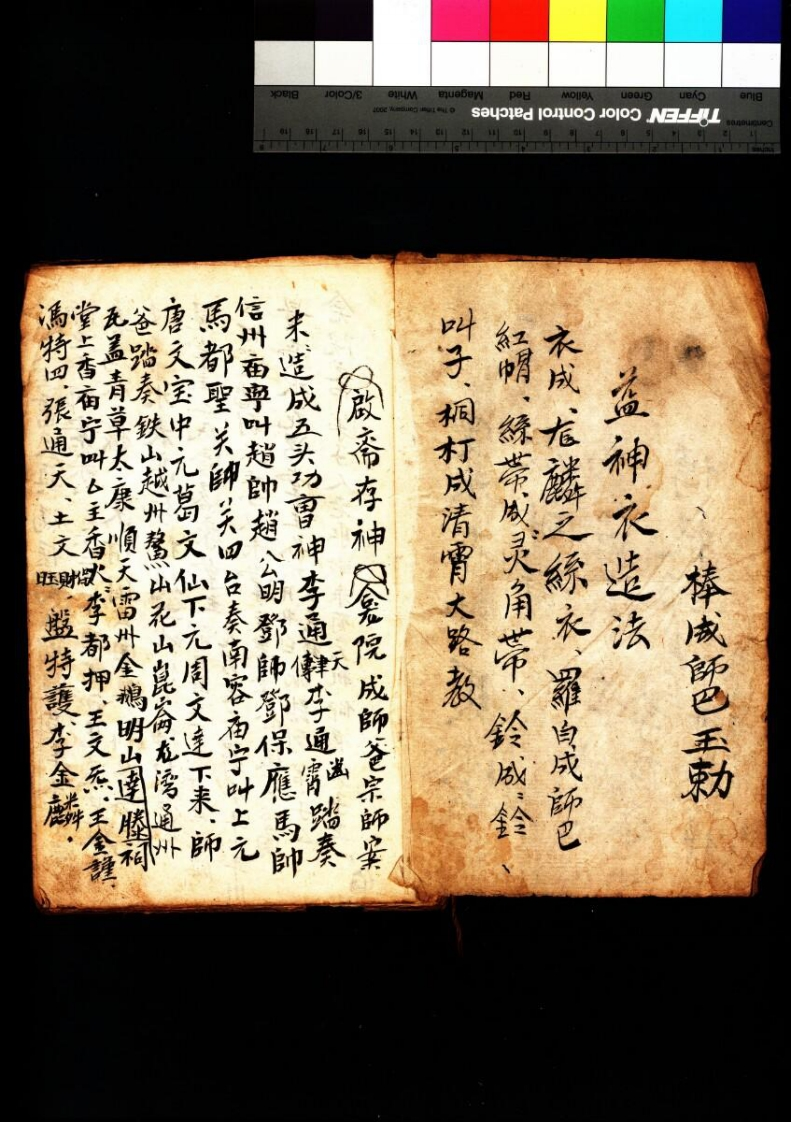 棒成師巴玉勅
益神衣造法
衣成、龙麟之絲衣、羅自成師巴
紅帽、絲带、成灵角带、鈴成鈴、
叫子、桐杠成清霄大路教
啟斋存神 院成師爸宗師案
未造成五头功曺神李通天傳李通霄 踏奏
信州庙寧叫趙帥趙公明鄧帥鄧保應馬帥
馬都聖关帥关四台奏南容庙宁叫上元
唐文宝中元葛文仙下元周文達下来、師
爸踏奏鉄山越州鰲山花山崑崙龙湾通州
瓦盖青草太康順天雷州金鵝明山達滕祠
堂上香庙宁叫厶主香火李都押、王文炁、王金謹、
馮特四、張通天、土文 旺財 盤特護李金麟。
TIFFEN Color Control Patches
© The Tiffen Company, 2007
Blue Cyan Green Yellow Red Magenta White 3/Color Black
Centimetres
Inches